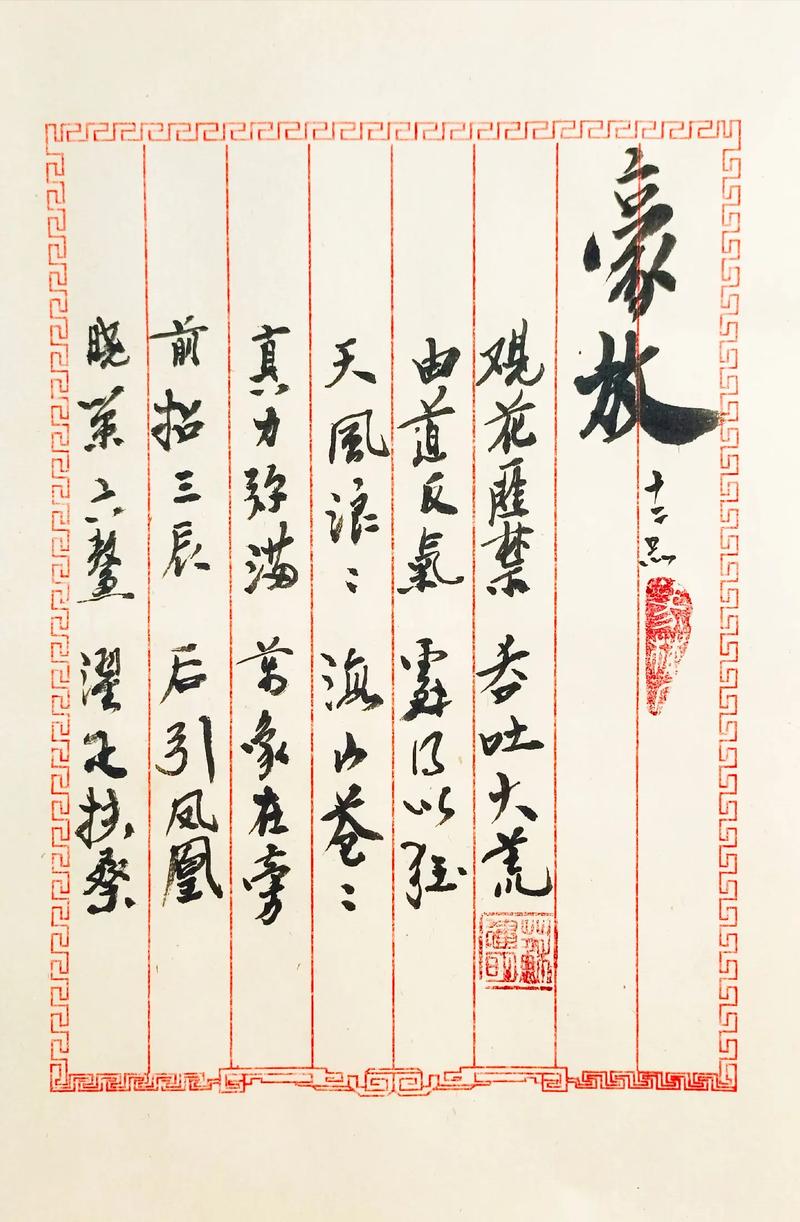 豪放
十二品
观花匪禁 吞吐大荒
由道反氣 處得以狂
天風浪〻 海山苍〻
真力弥满 萬象在旁
前招三辰 后引凤凰
晓策六鳌 濯足扶桑